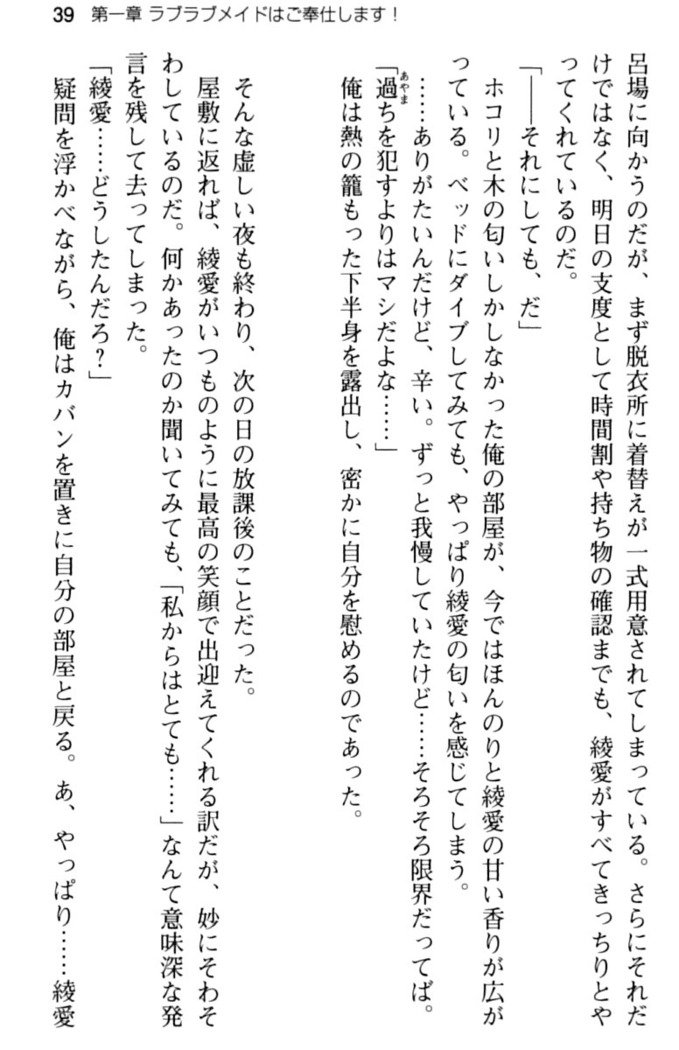 39 第一章 ラブラブメイドはご奉仕します！
呂場に向かうのだが、まず脱衣所に着替えが一式用意されてしまっている。さらにそれだ
けではなく、明日の支度として時間割や持ち物の確認までも、綾愛がすべてきっちりとや
ってくれているのだ。
「――それにしても、だ」
ホコリと木の匂いしかしなかった俺の部屋が、今ではほんのりと綾愛の甘い香りが広が
っている。ベッドにダイブしてみても、やっぱり綾愛の匂いを感じてしまう。
……ありがたいんだけど、辛い。ずっと我慢していたけど……そろそろ限界だってば。
「過ちを犯すよりはマシだよな……」
俺は熱の籠もった下半身を露出し、密かに自分を慰めるのであった。
そんな虚しい夜も終わり、次の日の放課後のことだった。
屋敷に返れば、綾愛がいつものように最高の笑顔で出迎えてくれる訳だが、妙にそわそ
わしているのだ。何かあったのか聞いてみても、「私からはとても……」なんて意味深な発
言を残して去ってしまった。
「綾愛……どうしたんだろ？」
疑問を浮かべながら、俺はカバンを置きに自分の部屋と戻る。あ、やっぱり……綾愛